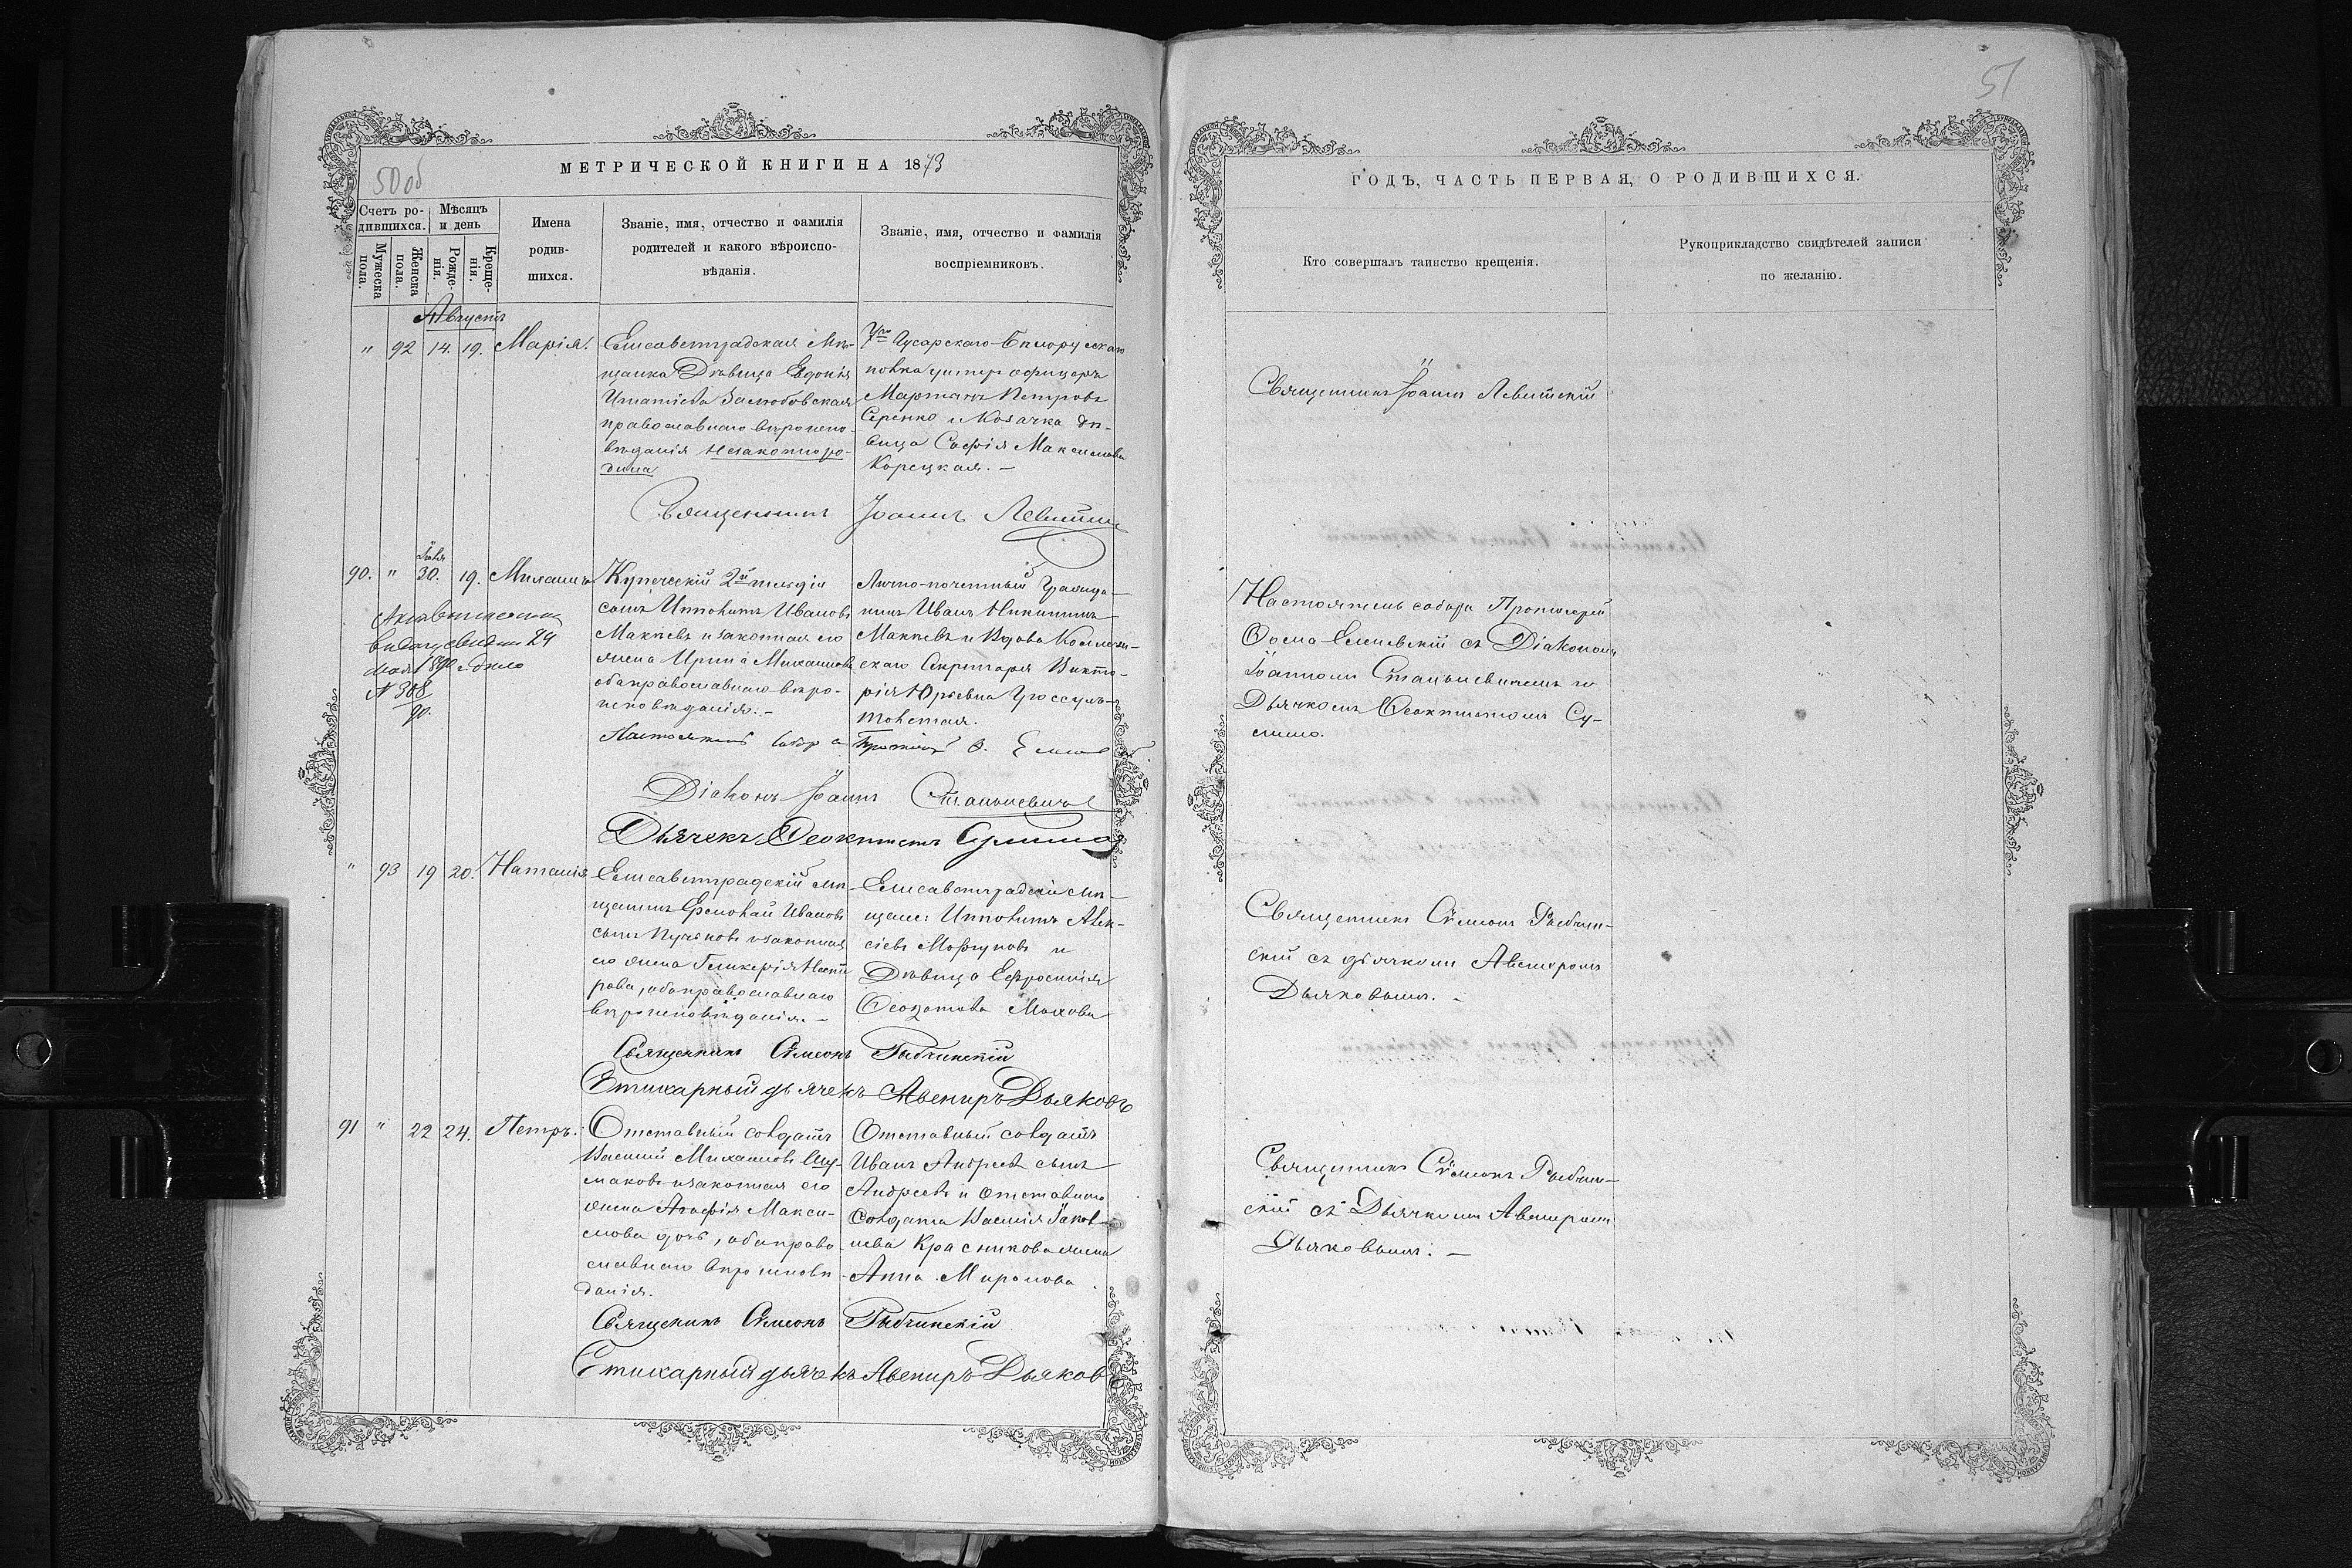 50 об
МЕТРИЧЕСКОЙ КНИГИ НА 1873
Счетъ ро-
дившихся.
Мѣсяцъ
и день
Мужеска
пола.
Женска
пола.
Рожде-
нія.
Креще-
нія.
Имена
родив-
шихся.
Званіе, имя, отчество и фамилія
родителей и какого вѣроиспо-
вѣданія.
Званіе, имя, отчество и фамилія
воспріемниковъ.
Августъ
" 92 14. 19. Марія.
Елисаветградская Мѣ-
щанка Дѣвица Евдокія
Игнатіева
православнаго вѣроиспо-
вѣданія незаконноро-
дина
7го Гусарскаго Бѣлорускаго
полка унтер офицеръ
Мартинъ Петровъ
Серенко и Козачка дѣ-
вица Софія Максимова
Корецкая. —
Священникъ Іоаннъ Левитскій
90. " Іюля 30. 19. Михаилъ
Купеческій 2й гильдіи
сынъ Ипполитъ Ивановъ
Макѣевъ и законная его
жена Ирина Михаилова
оба православнаго вѣро-
исповѣданія. —
Лично-почетный Гражда-
нинъ Иванъ Никитинъ
Макѣевъ и Вдова Коллежи-
скаго Секретаря Викто-
рія Юрьевна
29
мая 1890 г.
N 308
90.
Настоятель Собора Протоіерей Ѳ.
Діаконъ Іоаннъ Станиславичъ
Дьячекъ Ѳеоктистъ Сулима
" 93 19 20. Наталія
Елисаветградскій мѣ-
щанинъ Ермолай Ивановъ
сынъ и законная
его жена Гликерія Нест
рова, оба православнаго
вѣроисповѣданія. —
Елисаветградскій мѣ-
щанинъ Ипполитъ Алек-
сіевъ Моргуновъ и
Дѣвица Ефросинія
Ѳеодотова Махова
Священникъ Сѵмеонъ Рыбчинскій
Стихарный дьячекъ Авениръ Дьяковъ
91 " 22 24. Петръ.
Отставный солдатъ
Василій Михаиловъ Шу-
маковъ и законная его
жена Агафія Макси-
мова дочь, оба право-
славнаго вѣроисповѣ-
данія.
Отставный солдатъ
Иванъ Андреевъ сынъ
Андреевъ и отставнаго
Солдата Василія Іаков-
лева Красникова жена
Анна Миронова
Священникъ Сѵмеонъ Рыбчинскій
Стихарный дьячекъ Авениръ Дьяковъ
51
ГОДЪ, ЧАСТЬ ПЕРВАЯ, О РОДИВШИХСЯ.
Кто совершалъ таинство крещенія.
Рукоприкладство свидѣтелей записи
по желанію.
Священникъ Іоаннъ Левитскій
Настоятель собора Протоіерей
Ѳома съ Діакономъ
Іоанномъ и
Дьячкомъ Ѳеоктистомъ Су-
лимо.
Священникъ Сѵмеонъ Рыбчин-
скій съ дьячкомъ Авениромъ
Дьяковымъ. —
Священникъ Сѵмеонъ Рыбчин-
скій съ Дьячкомъ Авениромъ
Дьяковымъ. —